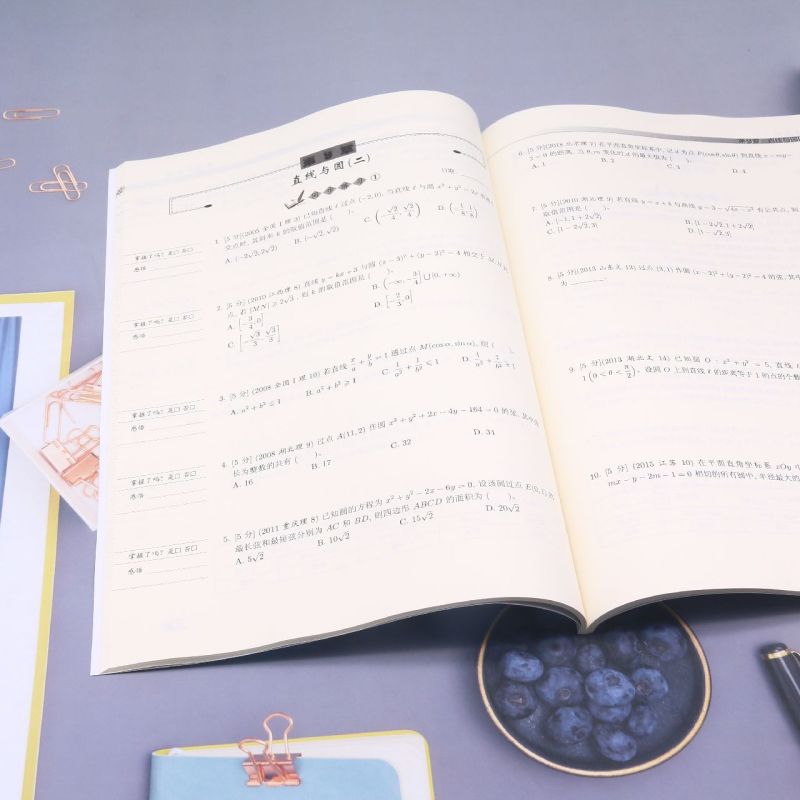 第9章
直线与圆(二)
①
日期:
掌握了吗? 是□ 否□
感悟
1. [5 分](2005 全国 I 理 3) 已知直线 ℓ 过点 (−2,0), 当直线 ℓ 与圆 x²+y²=2x 有两个
交点时, 其斜率 k 的取值范围是 ( ).
A. (−2√2,2√2) B. (−√2,√2) C. (−√2/4,√2/4) D. (−1/8,1/8)
掌握了吗? 是□ 否□
感悟
2. [5 分] (2010 江西理 8) 直线 y=kx+3 与圆 (x−3)²+(y−2)²=4 相交于 M,N 两
点, 若 |MN|⩾2√3, 则 k 的取值范围是 ( ).
A. [−3/4,0] B. (−∞,−3/4]∪[0,+∞)
C. [−√3/3,√3/3] D. [−2/3,0]
掌握了吗? 是□ 否□
感悟
3. [5 分] (2008 全国 I 理 10) 若直线 x/a+y/b=1 通过点 M(cosα,sinα), 则 ( ).
A. a²+b²⩽1 B. a²+b²⩾1 C. 1/a²+1/b²⩽1 D. 1/a²+1/b²⩾1
掌握了吗? 是□ 否□
感悟
4. [5 分] (2008 湖北理 9) 过点 A(11,2) 作圆 x²+y²+2x−4y−164=0 的弦, 其中弦
长为整数的共有 ( ).
A. 16 B. 17 C. 32 D. 34
掌握了吗? 是□ 否□
感悟
5. [5 分] (2011 重庆理 8) 已知圆的方程为 x²+y²−2x−6y=0, 设该圆过点 E(0,1) 的
最长弦和最短弦分别为 AC 和 BD, 则四边形 ABCD 的面积为 ( ).
A. 5√2 B. 10√2 C. 15√2 D. 20√2
第9章 直线与圆
6. [5 分](2018 北京理 7) 在平面直角坐标系中, 记 d 为点 P(cosθ,sinθ) 到直线 x−my−
2=0 的距离, 当 θ,m 变化时 d 的最大值为 ( ).
A. 1 B. 2 C. 3 D. 4
7. [5 分](2011 湖北理 9) 若直线 y=x+b 与曲线 y=3−√4x−x² 有公共点, 则
取值范围是 ( ).
A. [−1,1+2√2] B. [1−2√2,1+2√2]
C. [1−2√2,3] D. [1−√2,3]
8. [5 分](2013 山东文 13) 过点 (3,1) 作圆 (x−2)²+(y−2)²=4 的弦, 其中
为
9. [5 分](2013 湖北文 14) 已知圆 O : x²+y²=5, 直线 ℓ
1(0<θ<π/2). 设圆 O 上到直线 ℓ 的距离等于 1 的点的个数
10. [5 分] (2015 江苏 10) 在平面直角坐标系 xOy 中
mx−y−2m−1=0 相切的所有圆中, 半径最大的